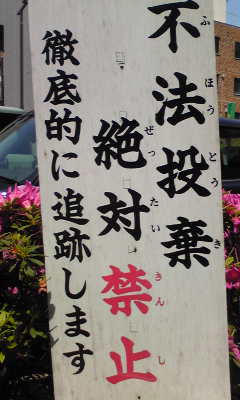 不法投棄
ふほうとうき
絶対禁止
ぜったいきんし
徹底的に追跡します